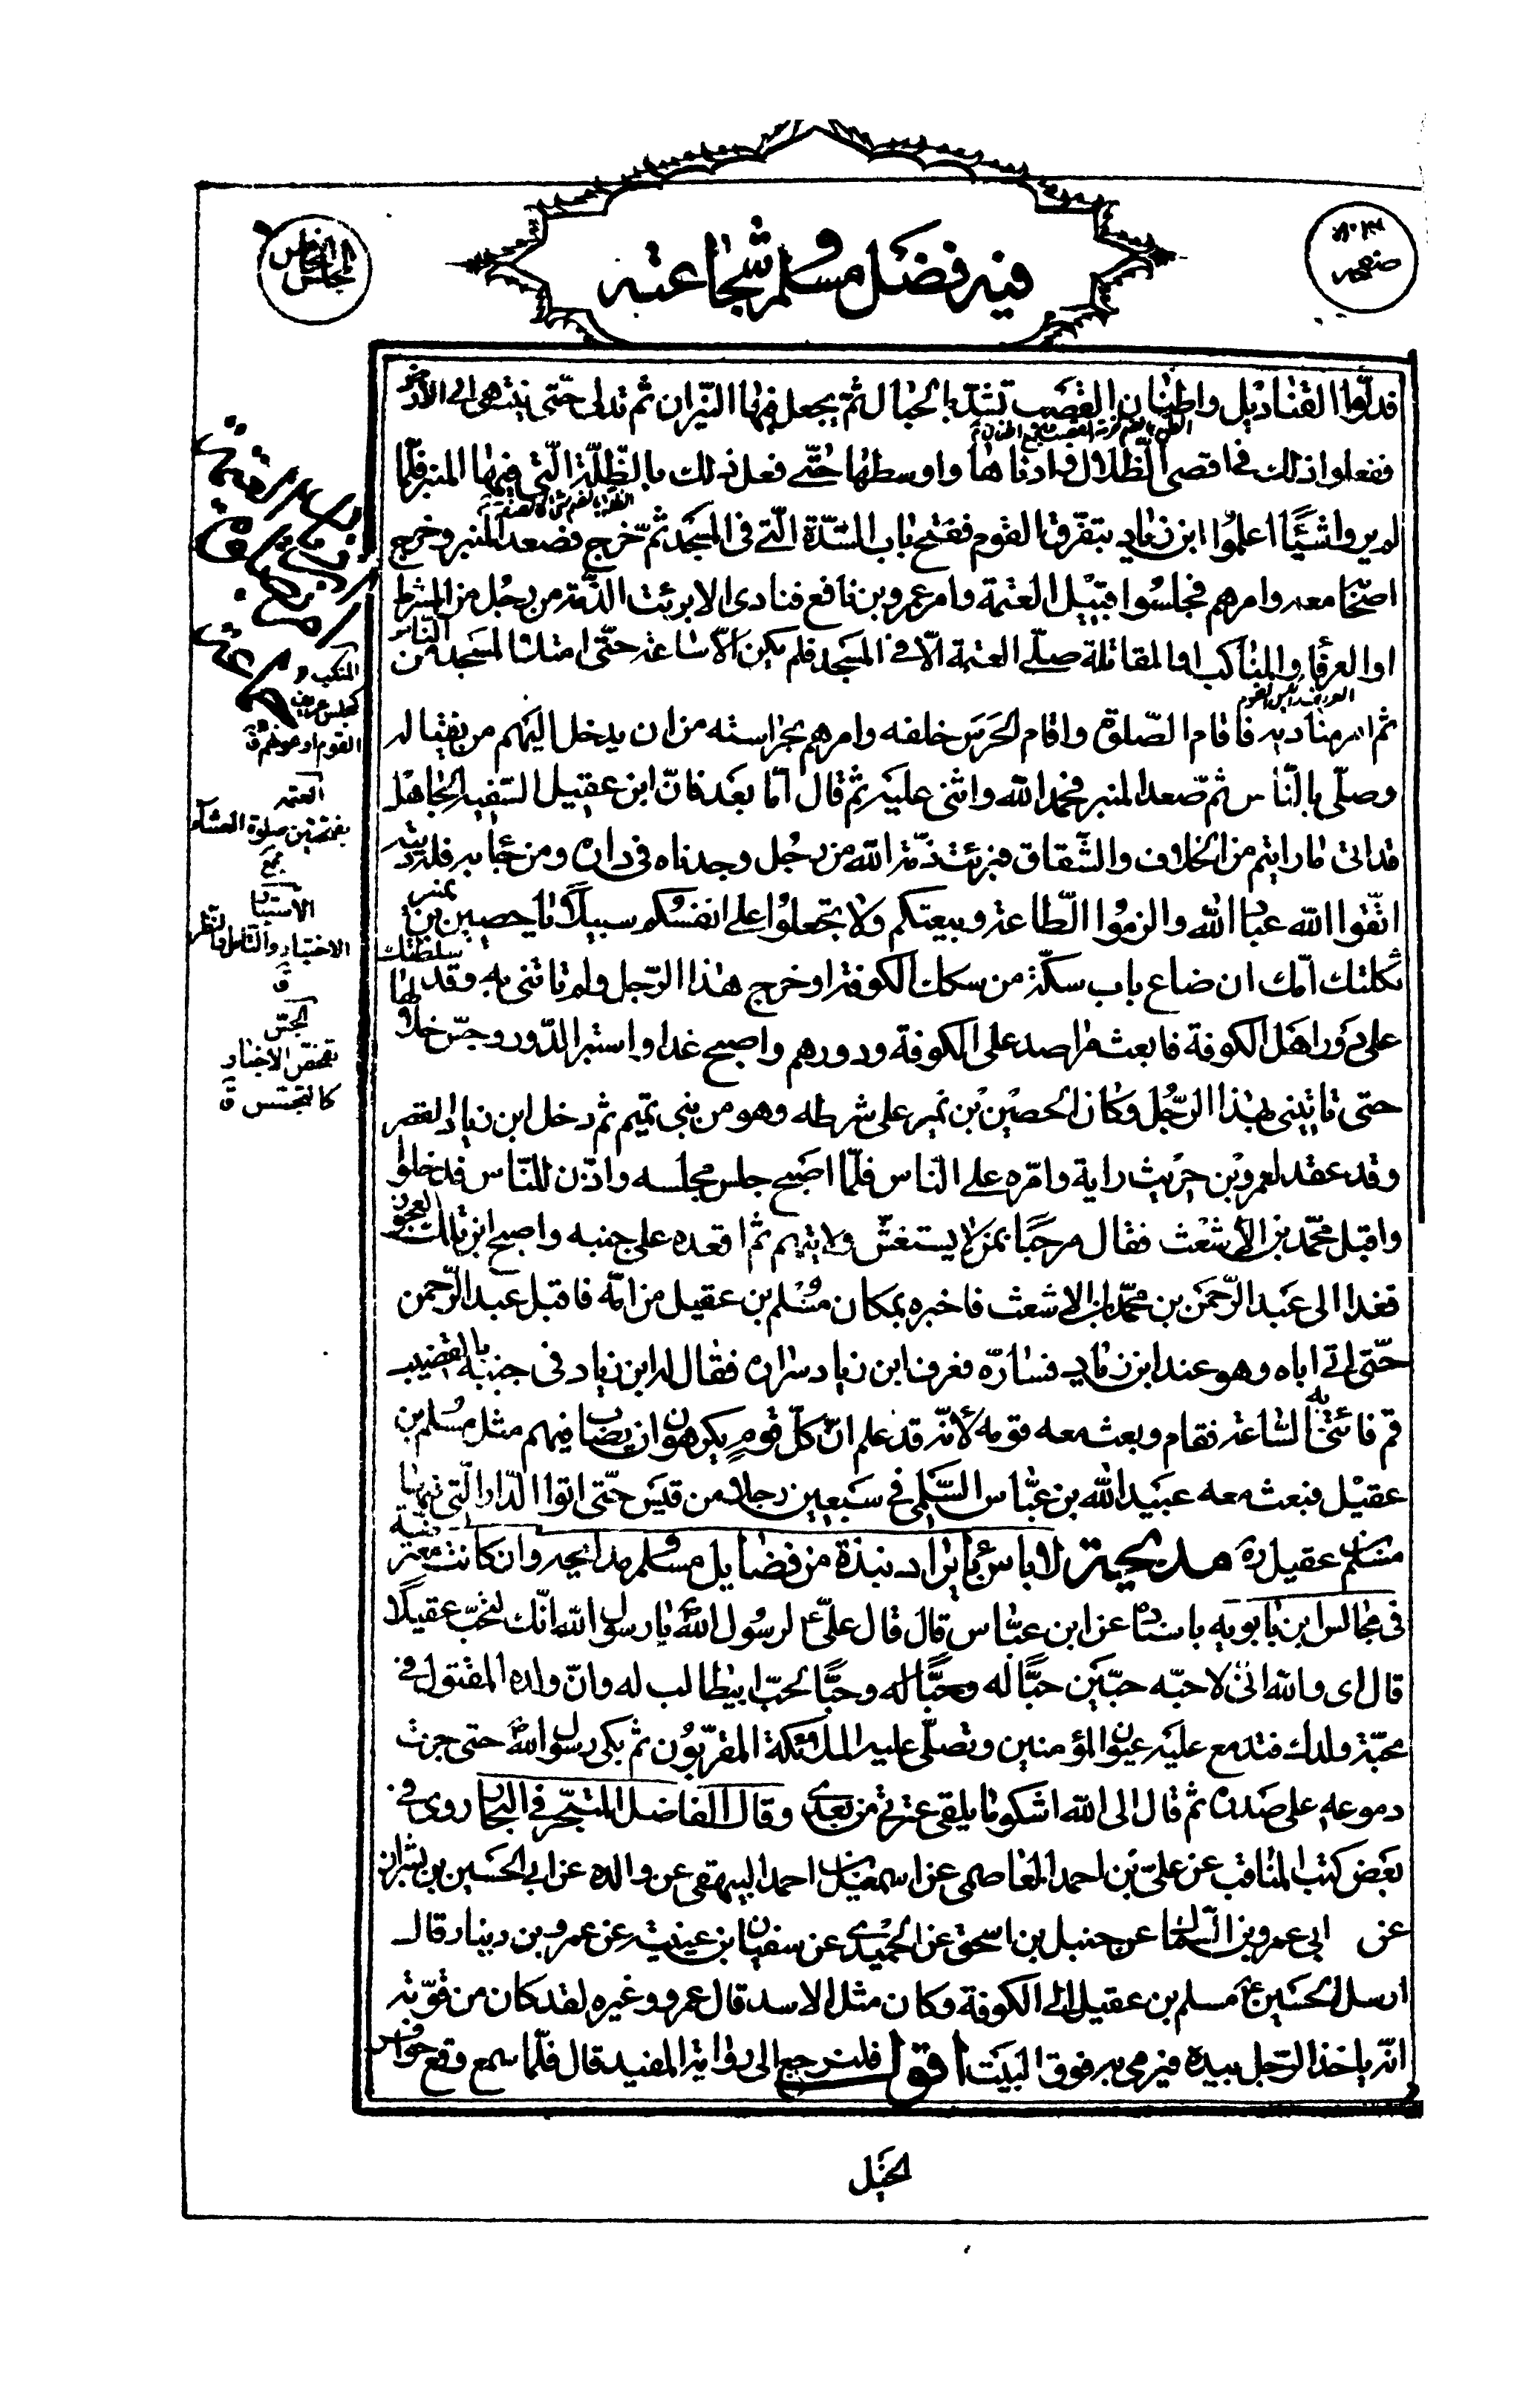 المجلس الخامس
فيه فضل مسلم وشجاعته
صفحه
فدلّوا القناديل واطنان القصب تشدّ بالحبال ثمّ يجعل فيها النّيران ثم تدلى حتّى ينتهى الى الأرض
ففعلوا ذلك فى اقصى الظّلال وادناها واوسطها حتّى فعل ذلك بالظّلّة الّتى فيها المنبر فلمّا
لم يروا شيئًا اعلموا ابن زياد بتفرّق القوم ففتح باب السّدّة الّتى فى المسجد ثمّ خرج فصعد المنبر وخرج
اصحابه معه وامرهم فجلسوا قبيل العتمة وامر عمرو بن نافع فنادى الا برئت الذّمّة من رجل من الشرط
او العرفاء والمناكب او المقاتلة صلّى العتمة الّا فى المسجد فلم يكن الّا ساعة حتّى امتلأ المسجد من النّاس
العريف رئيس القوم
ثم امر مناديه فاقام الصّلوة واقام الحرس خلفه وامرهم بحراسته من ان يدخل اليهم من يغتاله
وصلّى بالنّاس ثمّ صعد المنبر فحمد الله واثنى عليه ثم قال امّا بعد فانّ ابن عقيل السّفيه الجاهل
قد اتى ما رايتم من الخلاف والشّقاق فبرئت ذمّة الله من رجل وجدناه فى داره ومن جاء به فله ديته
اتّقوا الله عباد الله والزموا الطّاعة وبيعتكم ولا تجعلوا على انفسكم سبيلًا يا حصين بن نمير
ثكلتك امّك ان ضاع باب سكّة من سكك الكوفة او خرج هذا الرّجل ولم تاتنى به وقد سلطتك
على دور اهل الكوفة فابعث مراصد على الكوفة ودورهم واصبح غدا واستبر الدّور وجسّ خلالها
حتى تاتينى بهذا الرّجل وكان الحصين بن نمير على شرطه وهو من بنى تميم ثم دخل ابن زياد القصر
وقد عقد لعمرو بن حريث راية وامّره على النّاس فلمّا اصبح جلس مجلسه واذّن للنّاس فدخلوا
واقبل محمّد بن الأشعث فقال مرحبًا بمن لا يستغشّ ولا يتهم ثم اقعده على جنبه واصبح ابن تلك العجوز
فغدا الى عبد الرّحمن بن محمّد بن الاشعث فاخبره بمكان مسلم بن عقيل من امّه فاقبل عبد الرّحمن
حتّى اتى اباه وهو عند ابن زياد فسارّه فعرف ابن زياد سراره فقال له ابن زياد فى جنبه بالقضيب
قم فائتنى به السّاعة فقام وبعث معه قومه لأنّه قد علم انّ كلّ قوم يكرهون ان يصاب فيهم مثل مسلم بن
عقيل فبعث معه عبيد الله بن عبّاس السّلمى فى سبعين رجلا من قيس حتّى اتوا الدّار الّتى فيها
مسلم بن عقيل ره مديحة لا باس بايراد نبذة من فضايل مسلم ومدايحه وان كانت
فى مجالس ابن بابويه باسناده عن ابن عبّاس قال قال علىّ ع لرسول الله ص يا رسول الله انّك لتحبّ عقيلًا
قال اى والله انّى لاحبّه حبّين حبًّا له وحبًّا له وحبًّا لحبّ ابيطالب له وانّ ولده المقتول فى
محبّة ولدك فتدمع عليه عيون المؤمنين وتصلّى عليه الملئكة المقرّبون ثم بكى رسول الله ص حتى جرت
دموعه على صدره ثم قال الى الله اشكو ما يلقى عترتى من بعدى وقال الفاضل المتبحّر فى البحار روى فى
بعض كتب المناقب عن علىّ بن احمد العاصمى عن اسمعيل بن احمد البيهقى عن والده عن ابى الحسين بن بشران
عن ابى عمرو بن السّماك عن حنبل بن اسحق عن الحميدى عن سفيان بن عيينة عن عمرو بن دينار قال
ارسل الحسين ع مسلم بن عقيل الى الكوفة وكان مثل الاسد قال عمرو وغيره لقد كان من قوّته
انّه ياخذ الرّجل بيده فيرمى به فوق البيت اقول فلنرجع الى رواية المفيد قال فلمّا سمع وقع حوافر
الخيل
المنكب
القوم او عونهم ق
العتمه
بفتحتين صلوة العشاء
مجمع
الاستبار
الاختبار والتّامل والنظر
ق
الجسّ
تفحّص الاخبار
كالتجسّس ق